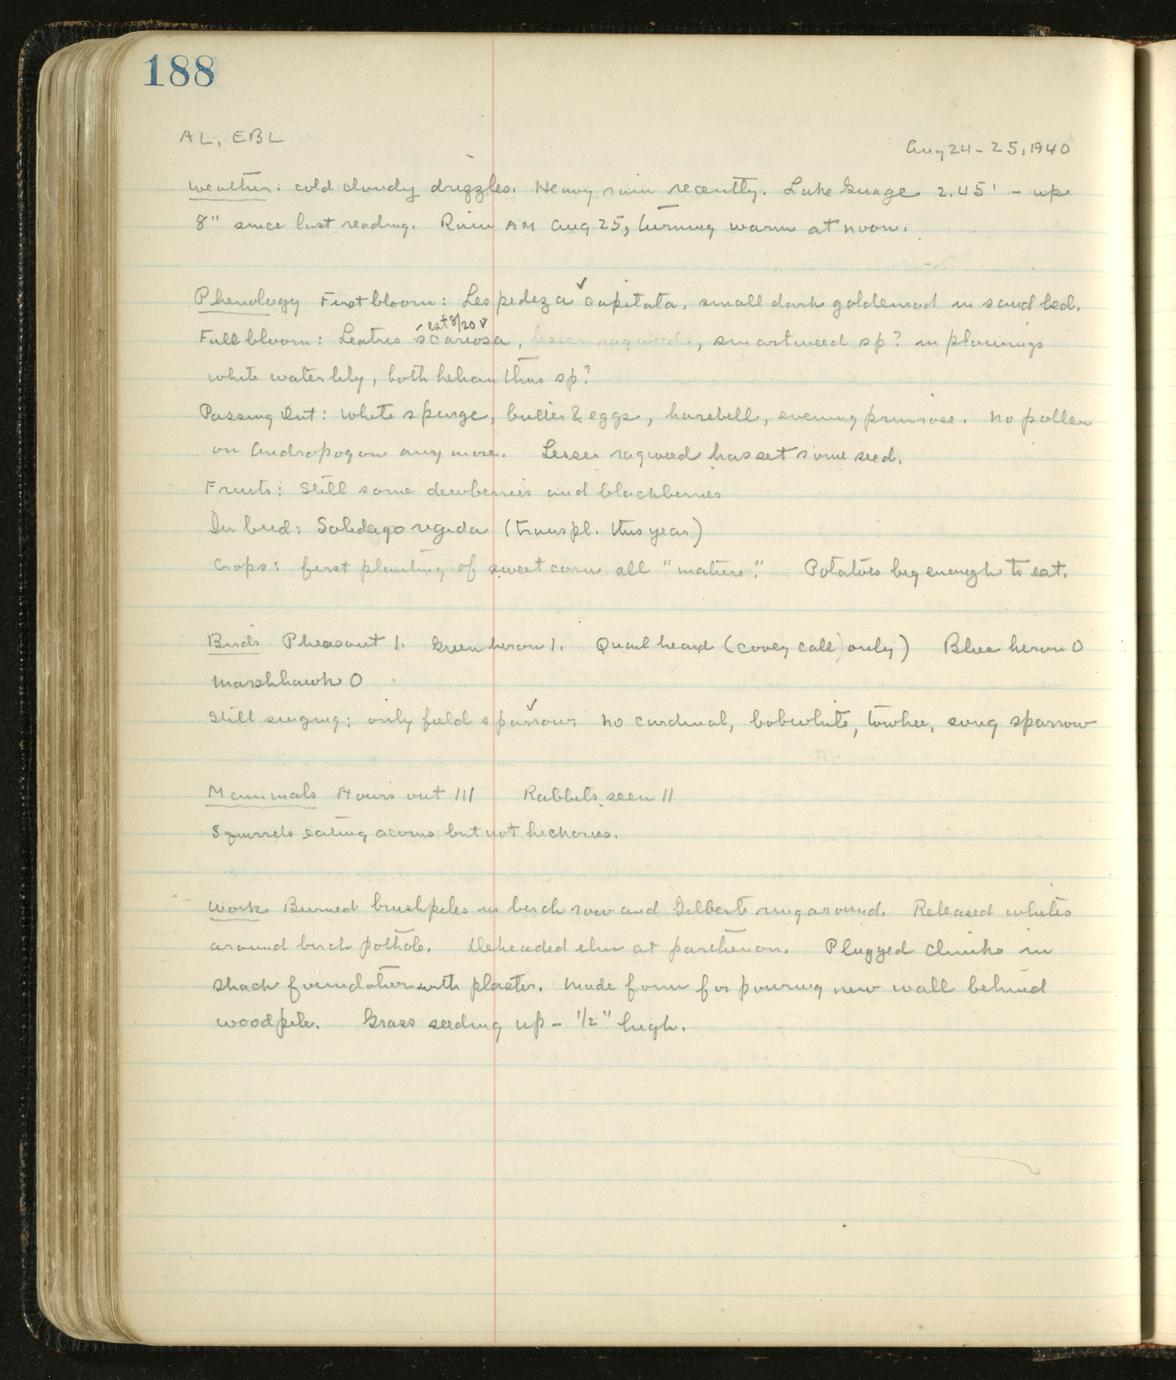 188
AL, EBL
Aug 24-25, 1940
Weather: cold cloudy drizzles. Heavy rain recently. Lake Guage 2.45' - up
8" since last reading. Rain AM Aug 25, turning warm at noon.
Phenology First bloom: Lespedeza ✓ capitata, small dark goldenrod in sand bed.
est 8/20 ✓
Full bloom: Leatris scariosa, lesser ragweed, smartweed sp? in plowings
white waterlily, both helianthus sp?
Passing Out: White spurge, butter & eggs, harebell, evening primrose. No pollen
on Andropogon any more. Lesser ragweed has set some seed.
Fruits: Still some dewberries and blackberries
In bud: Solidago rigida (transpl. this year)
Crops: first planting of sweet corn all "mature". Potatoes big enough to eat.
Birds Pheasant 1. Green heron 1. Quail heard (covey call) only) Blue heron 0
Marshhawk 0
Still singing: only field sparrow ✓; no cardinal, bobwhite, towhee, song sparrow
Mammals Hours out III Rabbits seen II
Squirrels eating acorns but not hickories.
Work Burned brushpiles in birch row and Gilbert ringaround. Released whites
around birch pothole. Deheaded elm at parthenon. Plugged chinks in
shack foundation with plaster. Made form for pouring new wall behind
woodpile. Grass seeding up - 1/2" high.